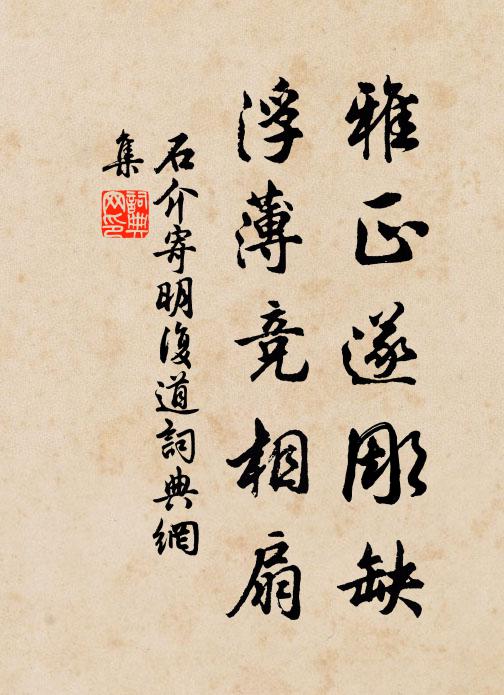 雅正遂彫缺
浮薄竞相扇
石介寄明復道詞典網
集
詞典
网印